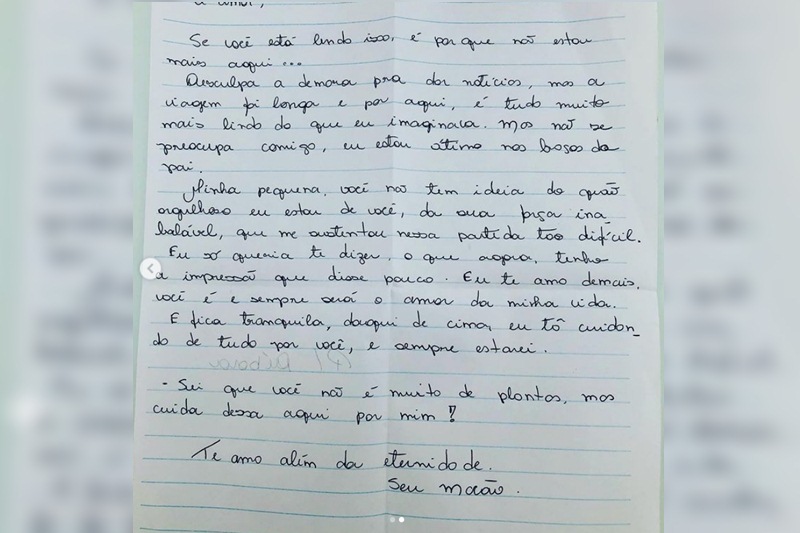 Se você está lendo isso, é por que não estou
mais aqui...
Desculpa a demora pra dar notícias, mas a
viagem foi longa e por aqui, é tudo muito
mais lindo do que eu imaginava. Mas não se
preocupa comigo, eu estou ótimo nos braços do
pai.
Minha pequena, você não tem ideia do quão
orgulhoso eu estou de você, da sua força ina_
balável, que me sustentou nessa partida tão difícil.
Eu só queria te dizer, o que agora, tenho
a impressão que disse pouco. Eu te amo demais,
você é e sempre será o amor da minha vida.
E fica tranquila, daqui de cima, eu tô cuidan_
do de tudo por você, e sempre estarei.
- Sei que você não é muito de plantas, mas
cuida dessa aqui por mim!
Te amo além da eternidade.
Seu